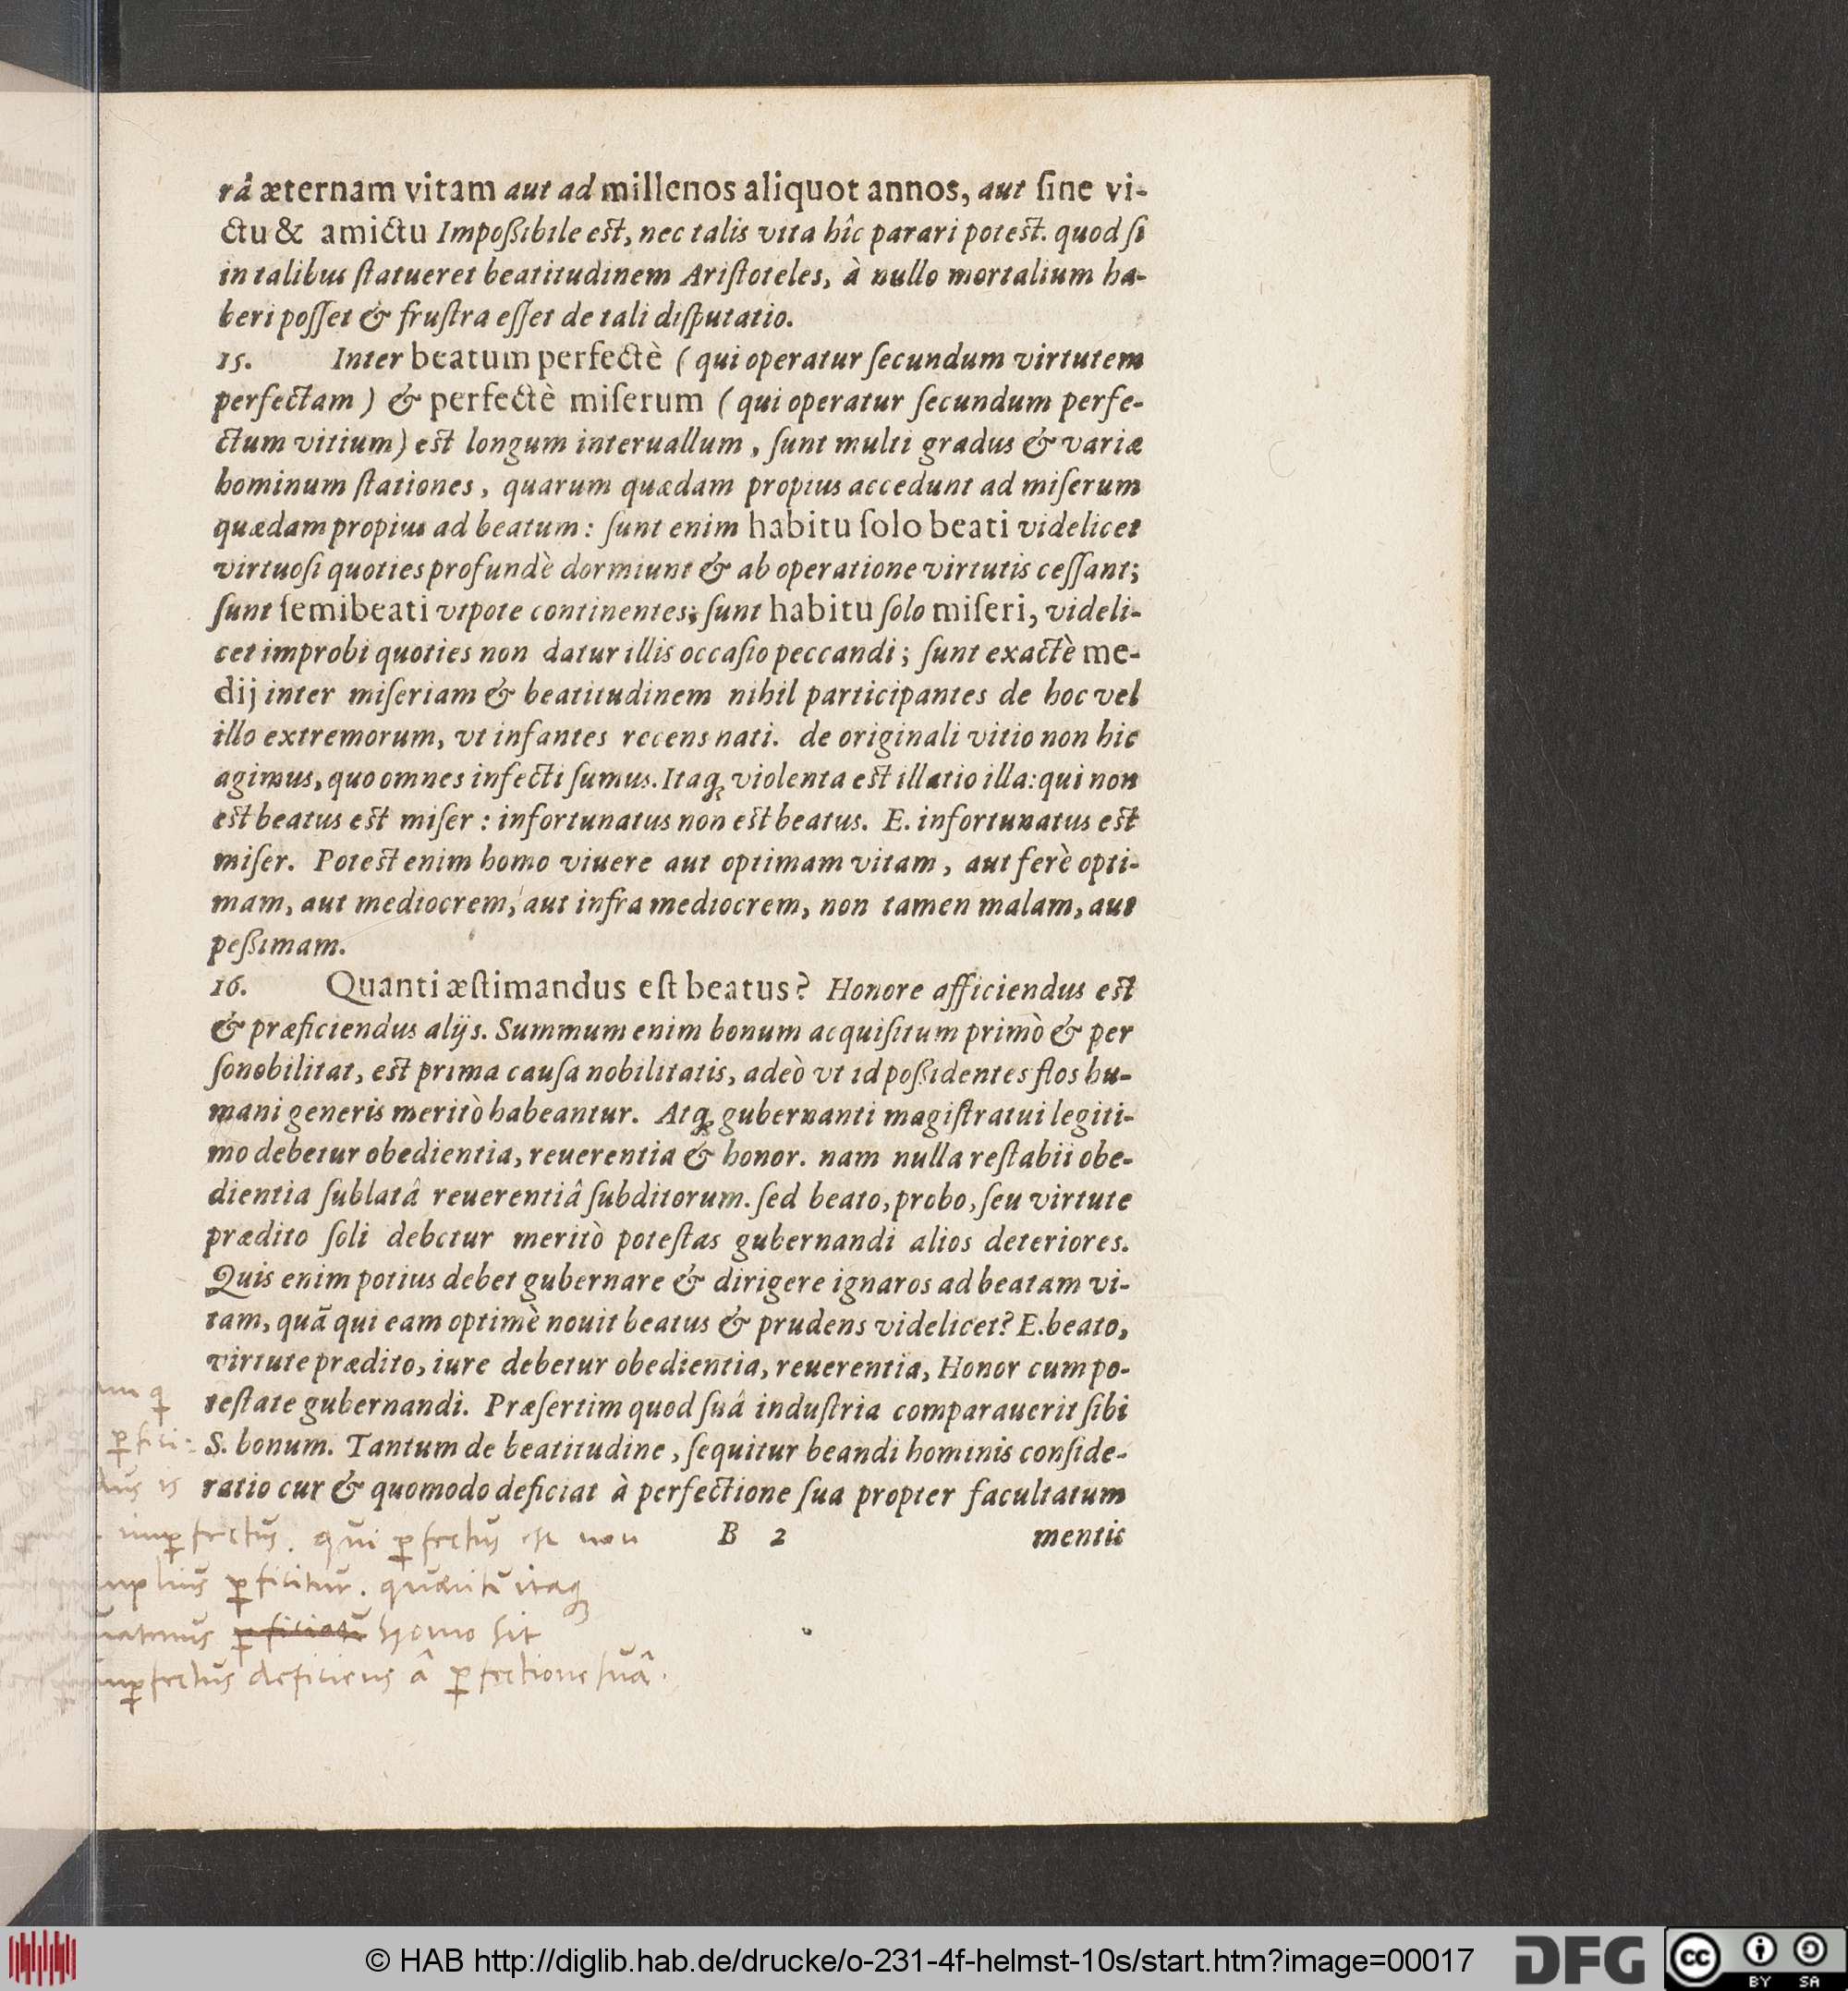 râ æternam vitam aut ad millenos aliquot annos, aut ſine vi-
ctu & amictu Impoßibile est, nec talis vita hîc parari potest. quod ſi
in talibus ſtatueret beatitudinem Ariſtoteles, à nullo mortalium ha-
beri poſſet & fruſtra eſſet de tali diſputatio.
15. Inter beatum perfectè ( qui operatur ſecundum virtutem
perfectam ) & perfectè miſerum ( qui operatur ſecundum perfe-
ctum vitium) est longum interuallum, ſunt multi gradus & variæ
hominum ſtationes, quarum quædam propius accedunt ad miſerum
quædam propius ad beatum: ſunt enim habitu ſolo beati videlicet
virtuoſi quoties profundè dormiunt & ab operatione virtutis ceſſant;
ſunt ſemibeati vtpote continentes; ſunt habitu ſolo miſeri, videli-
cet improbi quoties non datur illis occaſio peccandi; ſunt exactè me-
dij inter miſeriam & beatitudinem nihil participantes de hoc vel
illo extremorum, vt infantes recens nati. de originali vitio non hic
agimus, quo omnes infecti ſumus. Itaq; violenta est illatio illa: qui non
est beatus est miſer : infortunatus non est beatus. E. infortunatus est
miſer. Potest enim homo viuere aut optimam vitam, aut ferè opti-
mam, aut mediocrem, aut infra mediocrem, non tamen malam, aut
peßimam.
16. Quanti æſtimandus eſt beatus? Honore afficiendus est
& præficiendus alijs. Summum enim bonum acquiſitum primò & per
ſonobilitat, est prima cauſa nobilitatis, adeò vt id poßidentes flos hu-
mani generis meritò habeantur. Atq; gubernanti magiſtratui legiti-
mo debetur obedientia, reuerentia & honor. nam nulla reſtabit obe-
dientia ſublatâ reuerentiâ ſubditorum. ſed beato, probo, ſeu virtute
prædito ſoli debetur meritò poteſtas gubernandi alios deteriores.
Quis enim potius debet gubernare & dirigere ignaros ad beatam vi-
tam, quã qui eam optimè nouit beatus & prudens videlicet? E. beato,
virtute prædito, iure debetur obedientia, reuerentia, Honor cum po-
teſtate gubernandi. Præſertim quod ſuâ induſtria comparauerit ſibi
S. bonum. Tantum de beatitudine, ſequitur beandi hominis conſide-
ratio cur & quomodo deficiat à perfectione ſua propter facultatum
B 2 mentis
imꝑfectus. qui ꝑfectus est non
ꝑficitur. itaq;
homo sit
deficiens â ꝑfectione suâ.
© HAB http://diglib.hab.de/drucke/o-231-4f-helmst-10s/start.htm?image=00017
DFG
cc BY SA